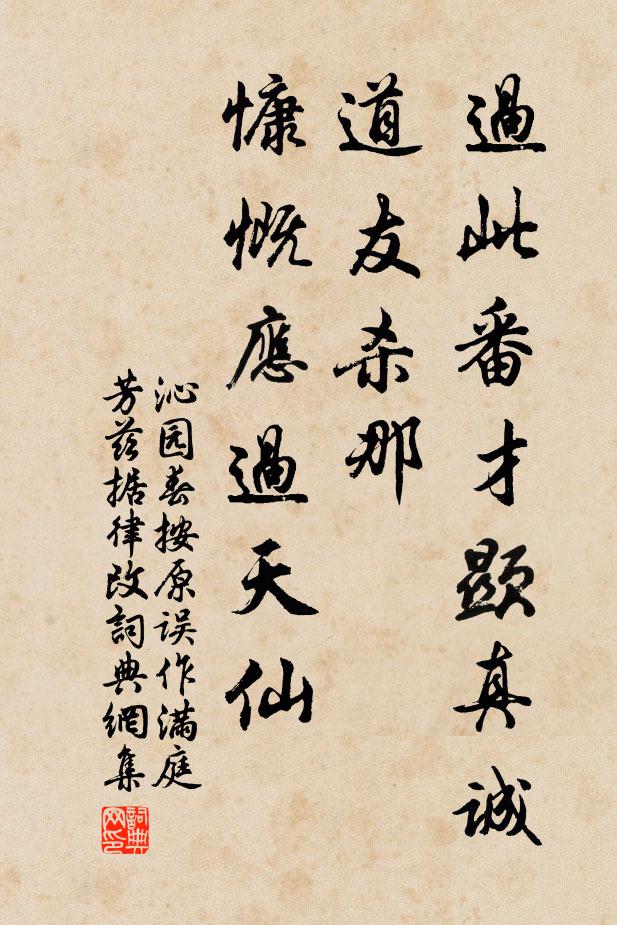 過此番才顯真誠
道友杀那
慷慨應過天仙
沁园春按原误作满庭
芳兹据律改詞典網集
詞典网印